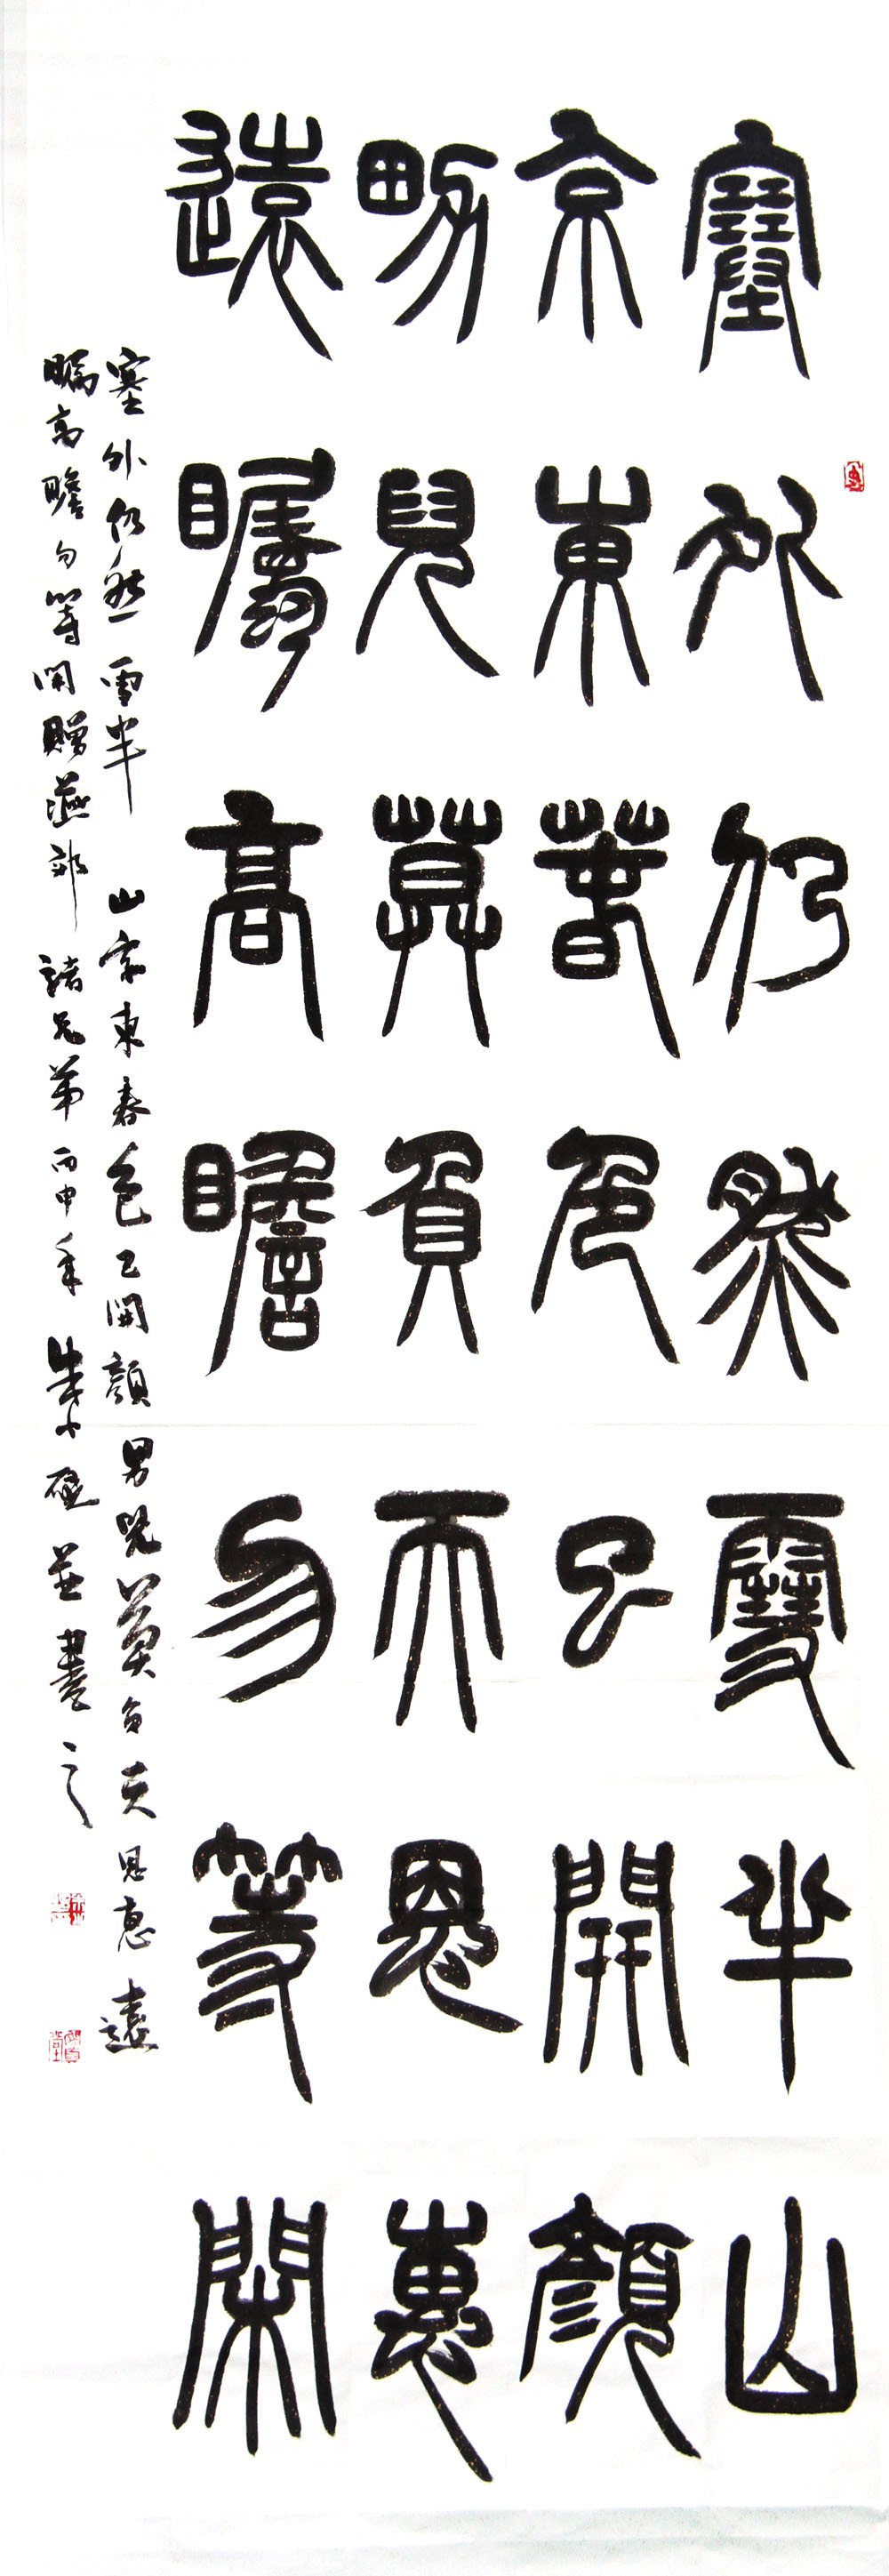 塞外仍然雪半山
京東春色已開顏
男兒莫負天恩惠
遠矚高瞻勿等閑
塞外仍然雪半山京東春色已開顏男兒莫負天恩惠遠
矚高瞻勿等閑贈燕郊諸兄弟丙申年朱小並書之